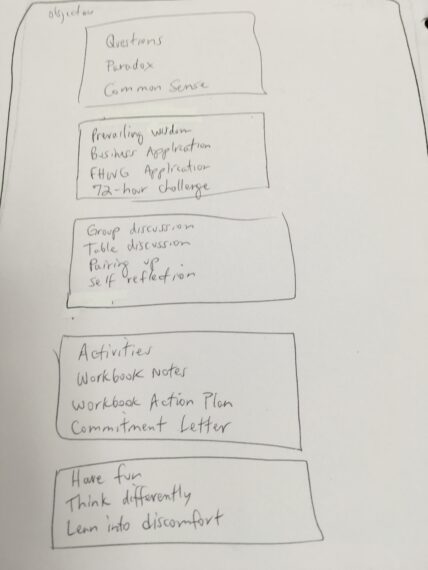 Objective
Questions
Paradox
Common Sense
Prevailing wisdom
Business Application
FHWG Application
72-hour challenge
Group discussion
Table discussion
Pairing up
self reflection
Activities
Workbook Notes
Workbook Action Plan
Commitment Letter
Have fun
Think differently
Lean into discomfort